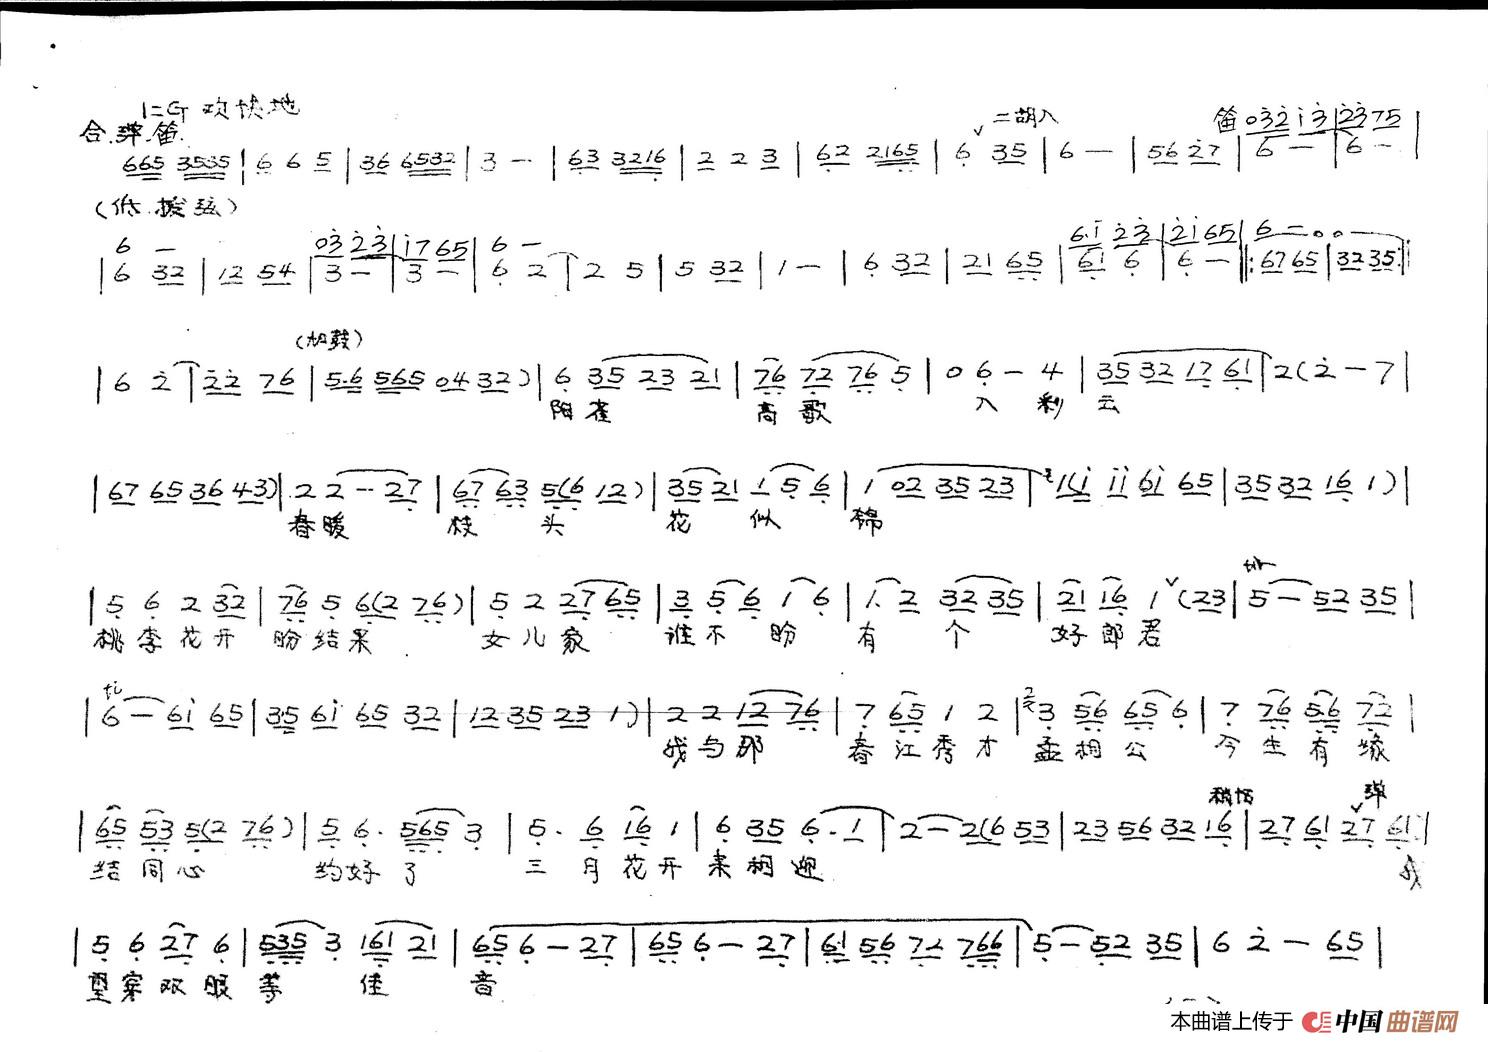 1=G 欢快地
合.弹.笛. 二胡入 笛 032 1 3 | 23 75
665 3535 | 6 6 5 | 36 6532 | 3 — | 63 3216 | 2 2 3 | 62 2165 | 6 35 | 6 — | 56 27 | 6 — | 6 — |
(低.拨弦)
6 — 03 23 | 17 65 | 6 — 6·1 23 | 21 65 | 6 — 0 0
| 6 32 | 12 54 | 3 — | 3 — | 6 2 | 2 5 | 5 32 | 1 — | 6 32 | 21 65 | 61 6 | 6 — ‖: 67 65 | 32 35 :‖
(加鼓)
| 6 2 | 22 76 | 5·6 565 04 32 ) | 6 35 23 21 | 76 72 76 5 | 0 6 — 4 | 35 32 17 61 | 2 ( 2 — 7 |
阳雀 高歌 入彩云
| 67 65 36 43 ) | 2 2 — 27 | 67 63 5(6 12 ) | 35 21 1 5 6 | 1 02 35 23 | 1(1 11 61 65 | 35 32 16 1 ) |
春暖 枝头 花似 锦
| 5 6 2 32 | 76 5 6(2 76 ) | 5 2 27 65 | 3 5 6 1 6 | 1. 2 32 35 | 21 16 1 (23 | 5 — 52 35 |
桃李花开 盼结果 女儿家 谁不盼 有个 好郎君
| 6 — 61 65 | 35 61 65 32 | 12 35 23 1 ) | 2 2 12 76 | 7 65 1 2 | 3 56 65 6 | 7 76 56 72 |
我与那 春江秀才 孟相公 今生有缘
弹
| 65 53 5(2 76 ) | 5 6. 565 3 | 5. 6 16 1 | 6 35 6. 1 | 2 — 2(6 53 | 23 56 32 16 | 27 61 27 61 |
结同心 约好了 三月花开 来相迎 我
| 5 6 27 6 | 535 3 161 21 | 65 6 — 27 | 65 6 — 27 | 61 56 72 766 | 5 — 52 35 | 6 2 — 65 |
望穿双眼 等佳音
本曲谱上传于 中国曲谱网